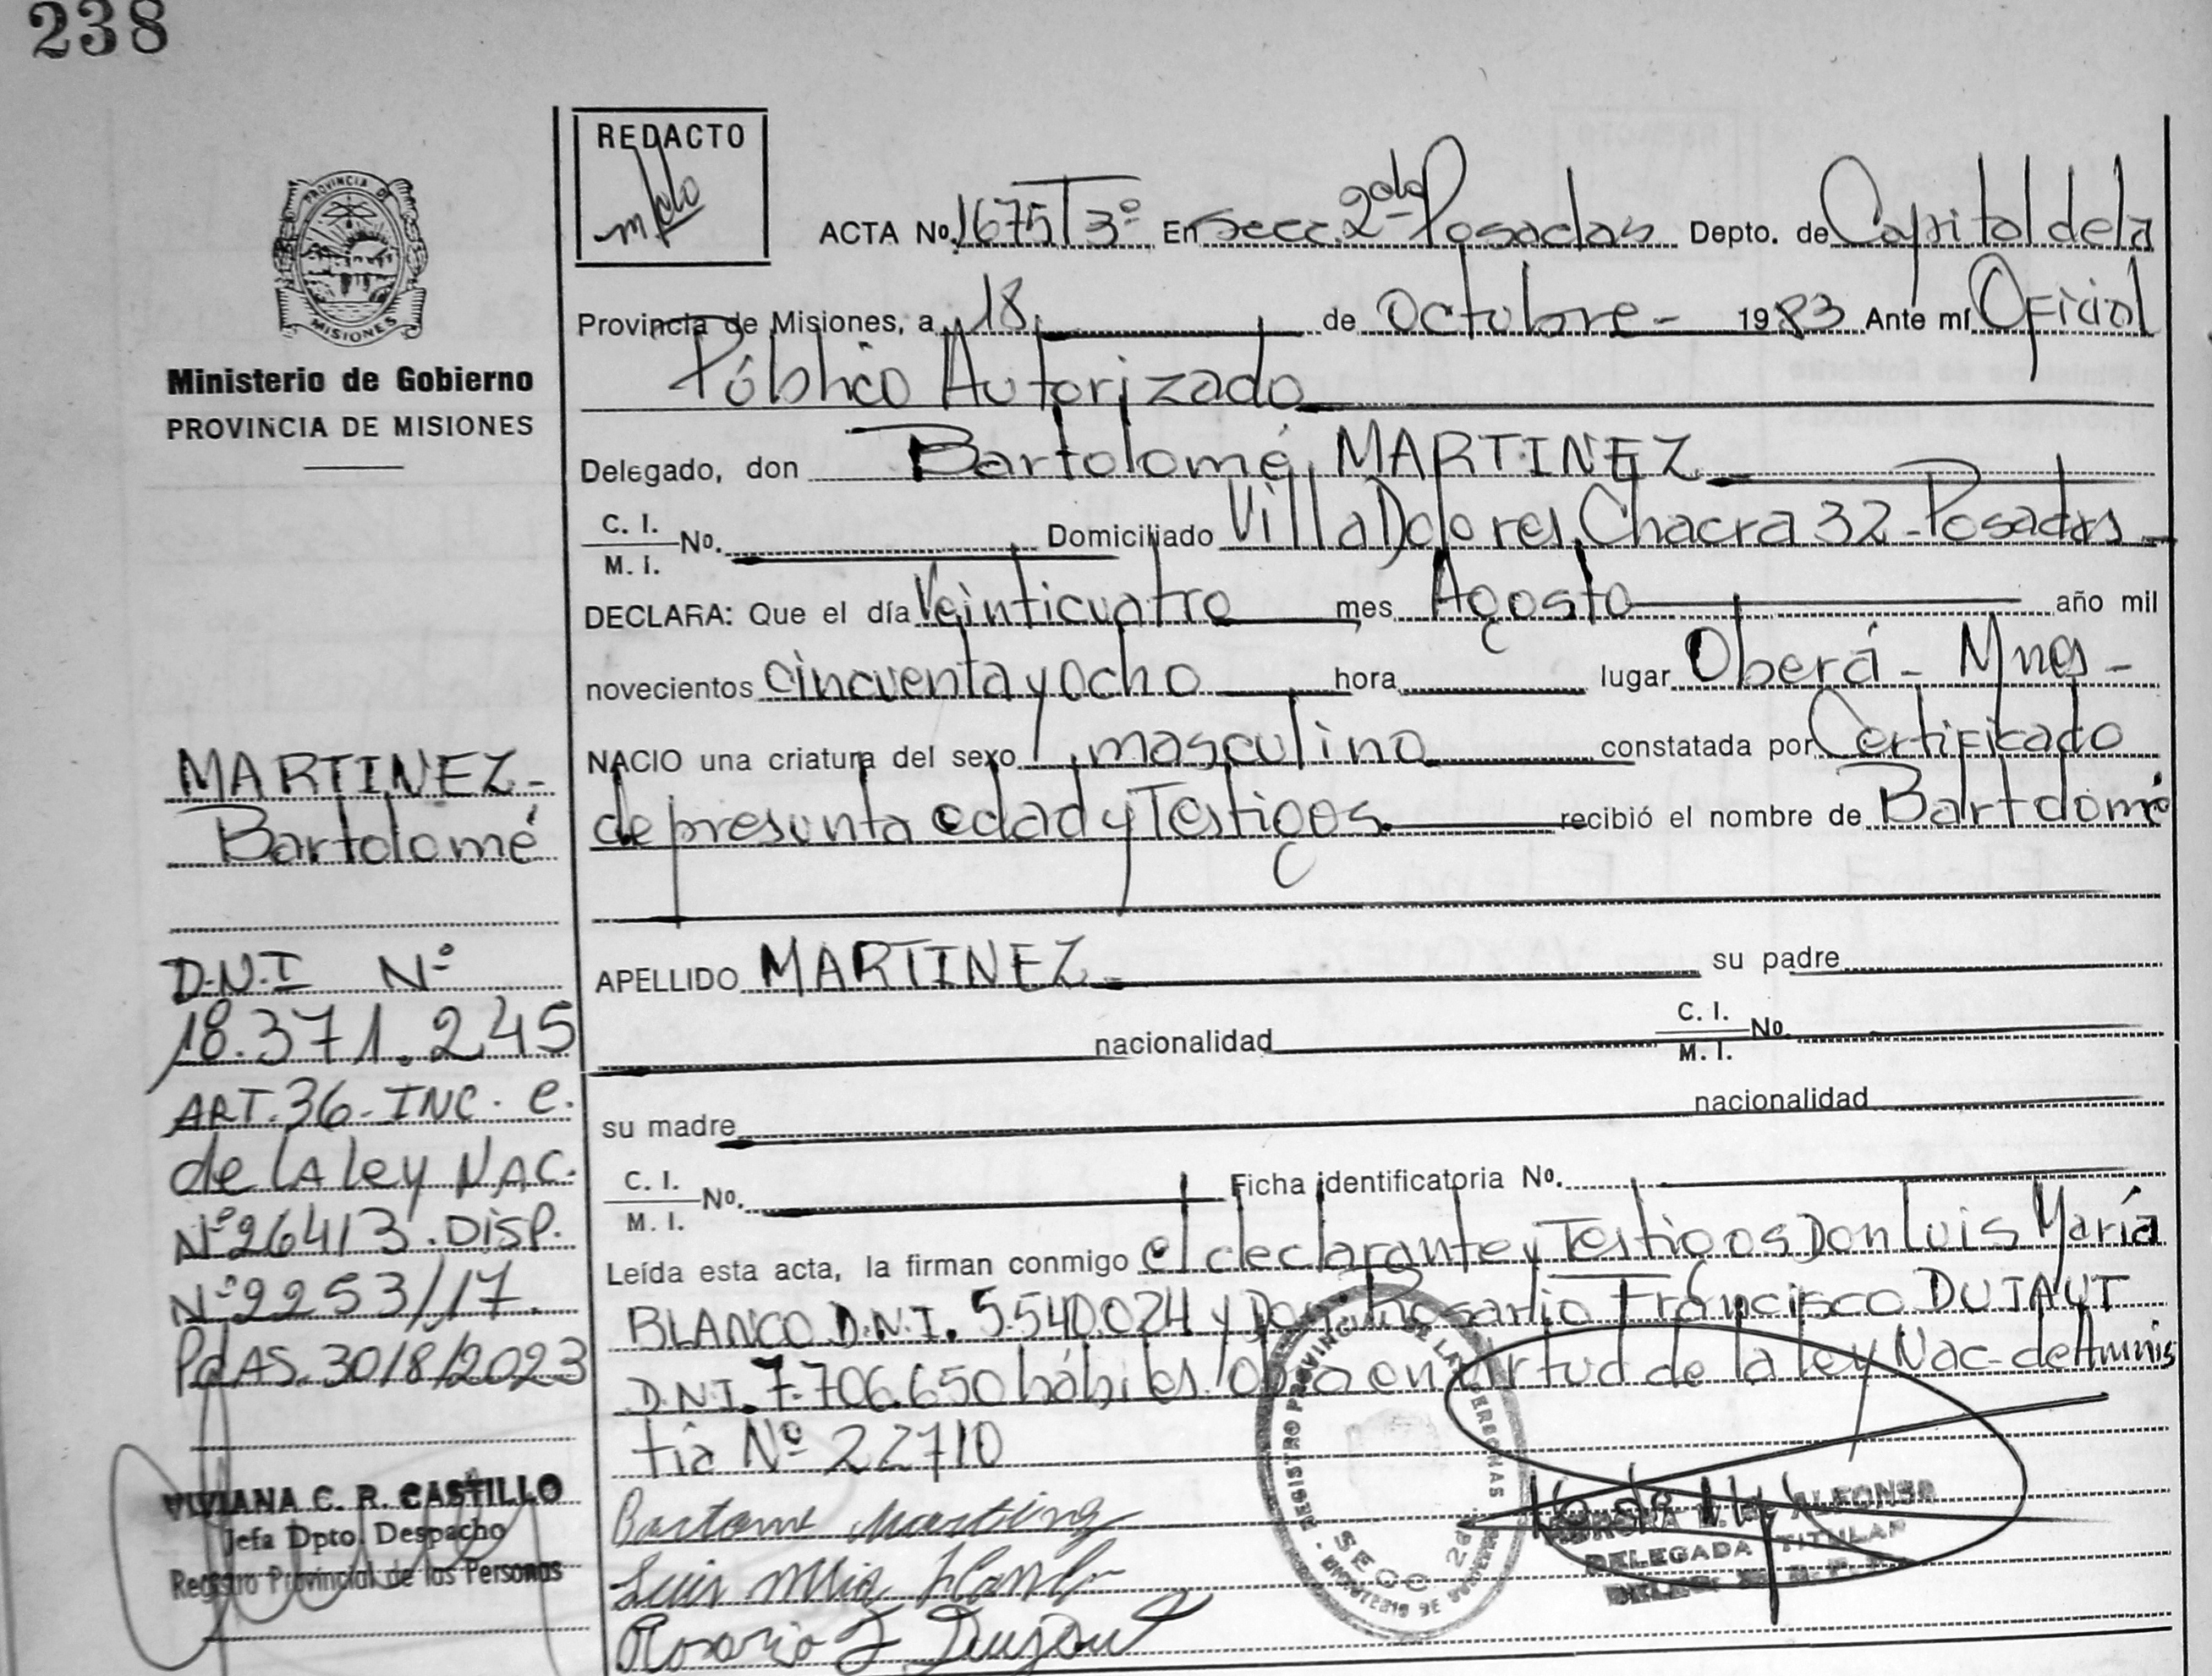 238
REDACTO
PROVINCIA DE
MISIONES
Ministerio de Gobierno
PROVINCIA DE MISIONES
ACTA No. 1675 T 3º En Secc. 2da Posadas Depto. de Capital de la
Provincia de Misiones, a 18 de Octubre - 1983 Ante mí Oficial
Público Autorizado
Delegado, don Bartolomé MARTINEZ
C. I.
M. I. No. Domiciliado Villa Dolores, Chacra 32 - Posadas -
DECLARA: Que el día Veinticuatro mes Agosto año mil
novecientos cincuenta y ocho hora lugar Oberá - Mnes -
NACIO una criatura del sexo masculino constatada por Certificado
de presunta edad y Testigos. recibió el nombre de Bartolomé
APELLIDO MARTINEZ su padre
nacionalidad C. I.
M. I. No.
su madre nacionalidad
C. I.
M. I. No. Ficha identificatoria No.
Leída esta acta, la firman conmigo el declarante y Testigos Don Luis María
BLANCO D.N.I. 5.540.024 y Don Rosario Francisco DUJAUT
D.N.I. 7.706.650 hábiles. Obro en virtud de la ley Nac. de Amnis
tía Nº 22710
MARTINEZ -
Bartolomé
D.N.I Nº
18.371.245
ART. 36 - INC. e.
de LA ley NAC.
Nº 26413. DISP.
Nº 2253/17.
PdAS. 30/8/2023
VIVIANA C. R. CASTILLO
Jefa Dpto. Despacho
Registro Provincial de las Personas
Luis
Rosario F Dujaut
REGISTRO PROVINCIAL DE LAS PERSONAS
SECC. 2da.
ALFONSO
DELEGADA TITULAR